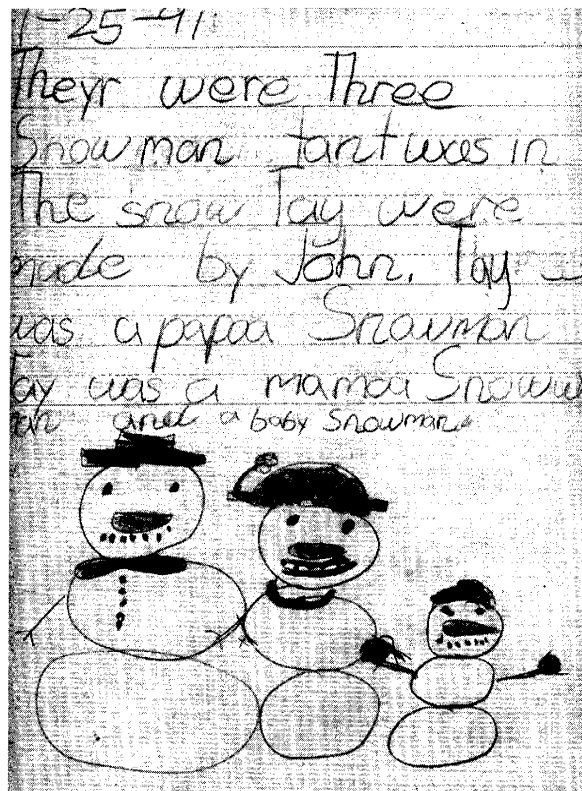 1-25-91
Theyr were Three
Snowman tant was in
The snow Tay were
made by John. Tay
was a papoa Snowman
Tay was a mamoa Snoww
an and a baby snowman.